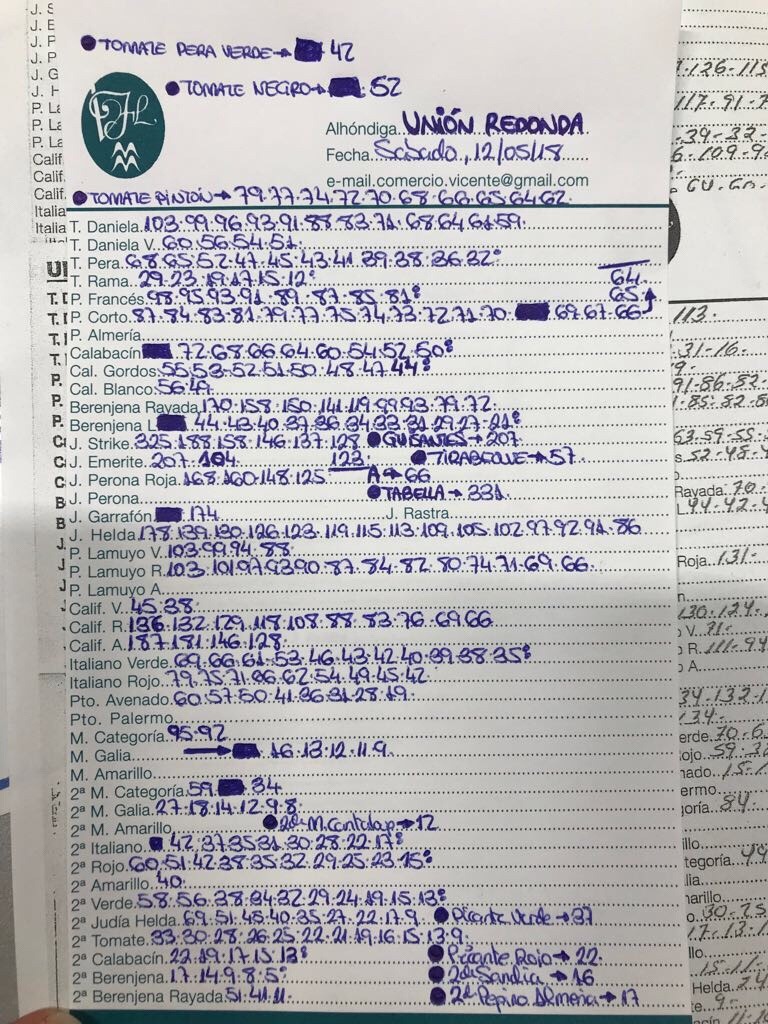 • TOMATE PERA VERDE → 42
• TOMATE NEGRO → 52
Alhóndiga...UNIÓN REDONDA
Fecha...Sábado, 12/05/18
e-mail.comercio.vicente@gmail.com
• TOMATE PINTÓN → 79.77.74.72.70.68.66.65.64.62.
T. Daniela.103.99.96.93.91.88.83.71.68.64.61.59.
T. Daniela V. 60.56.54.51.
T. Pera.68.65.52.47.45.43.41.39.38.36.32º
T. Rama. 29.23.19.17.15.12º
64.
P. Francés.98.95.93.91.89.87.85.81º
65.
P. Corto.87.84.83.81.79.77.75.74.73.72.71.70. 69.67.66
P. Almería
Calabacín 72.68.66.64.60.54.52.50º
Cal. Gordos.55.53.52.51.50.48.47.44º
Cal. Blanco.56.49
Berenjena Rayada.170.158.150.141.119.99.93.79.72.
Berenjena L 44.43.40.37.36.34.33.31.29.27.21º
J. Strike.325.188.158.146.137.128 • GUISANTES → 207
J. Emerite.207.104 123 • TIRABEQUE → 57
J. Perona Roja.168.160.148.125 A → 66
J. Perona • TABELLA → 331
J. Garrafón 174 J. Rastra
J. Helda.178.139.130.126.123.119.115.113.109.105.102.97.92.91.86
P. Lamuyo V.103.99.94.88
P. Lamuyo R.103.101.97.93.90.87.84.82.80.74.71.69.66.
P. Lamuyo A.
Calif. V.45.38.
Calif. R.136.132.129.118.108.88.83.76.69.66
Calif. A.187.181.146.128.
Italiano Verde.69.66.61.53.46.43.42.40.39.38.35º
Italiano Rojo.79.75.71.66.62.54.49.45.42
Pto. Avenado.60.57.50.41.36.31.28.19.
Pto. Palermo
M. Categoría.95.92
M. Galia → 16.13.12.11.9.
M. Amarillo
2ª M. Categoría.59 34
2ª M. Galia.27.18.14.12.9.8.
2ª M. Amarillo • 2ª M. Cantalup → 12
2ª Italiano. 42.37.35.31.30.28.22.17º
2ª Rojo.60.51.42.38.35.32.29.25.23.15º
2ª Amarillo.40.
2ª Verde.58.56.38.34.32.29.24.19.15.13º
2ª Judía Helda.69.51.45.40.35.27.22.17.9. • Picante Verde → 37
2ª Tomate.33.30.28.26.25.22.21.19.16.15.13.9.
2ª Calabacín.22.19.17.15.13º • Picante Rojo → 22.
2ª Berenjena.17.14.9.8.5º • 2ª Sandia → 16
2ª Berenjena Rayada.51.41.11. • 2ª Pepino Almería → 17